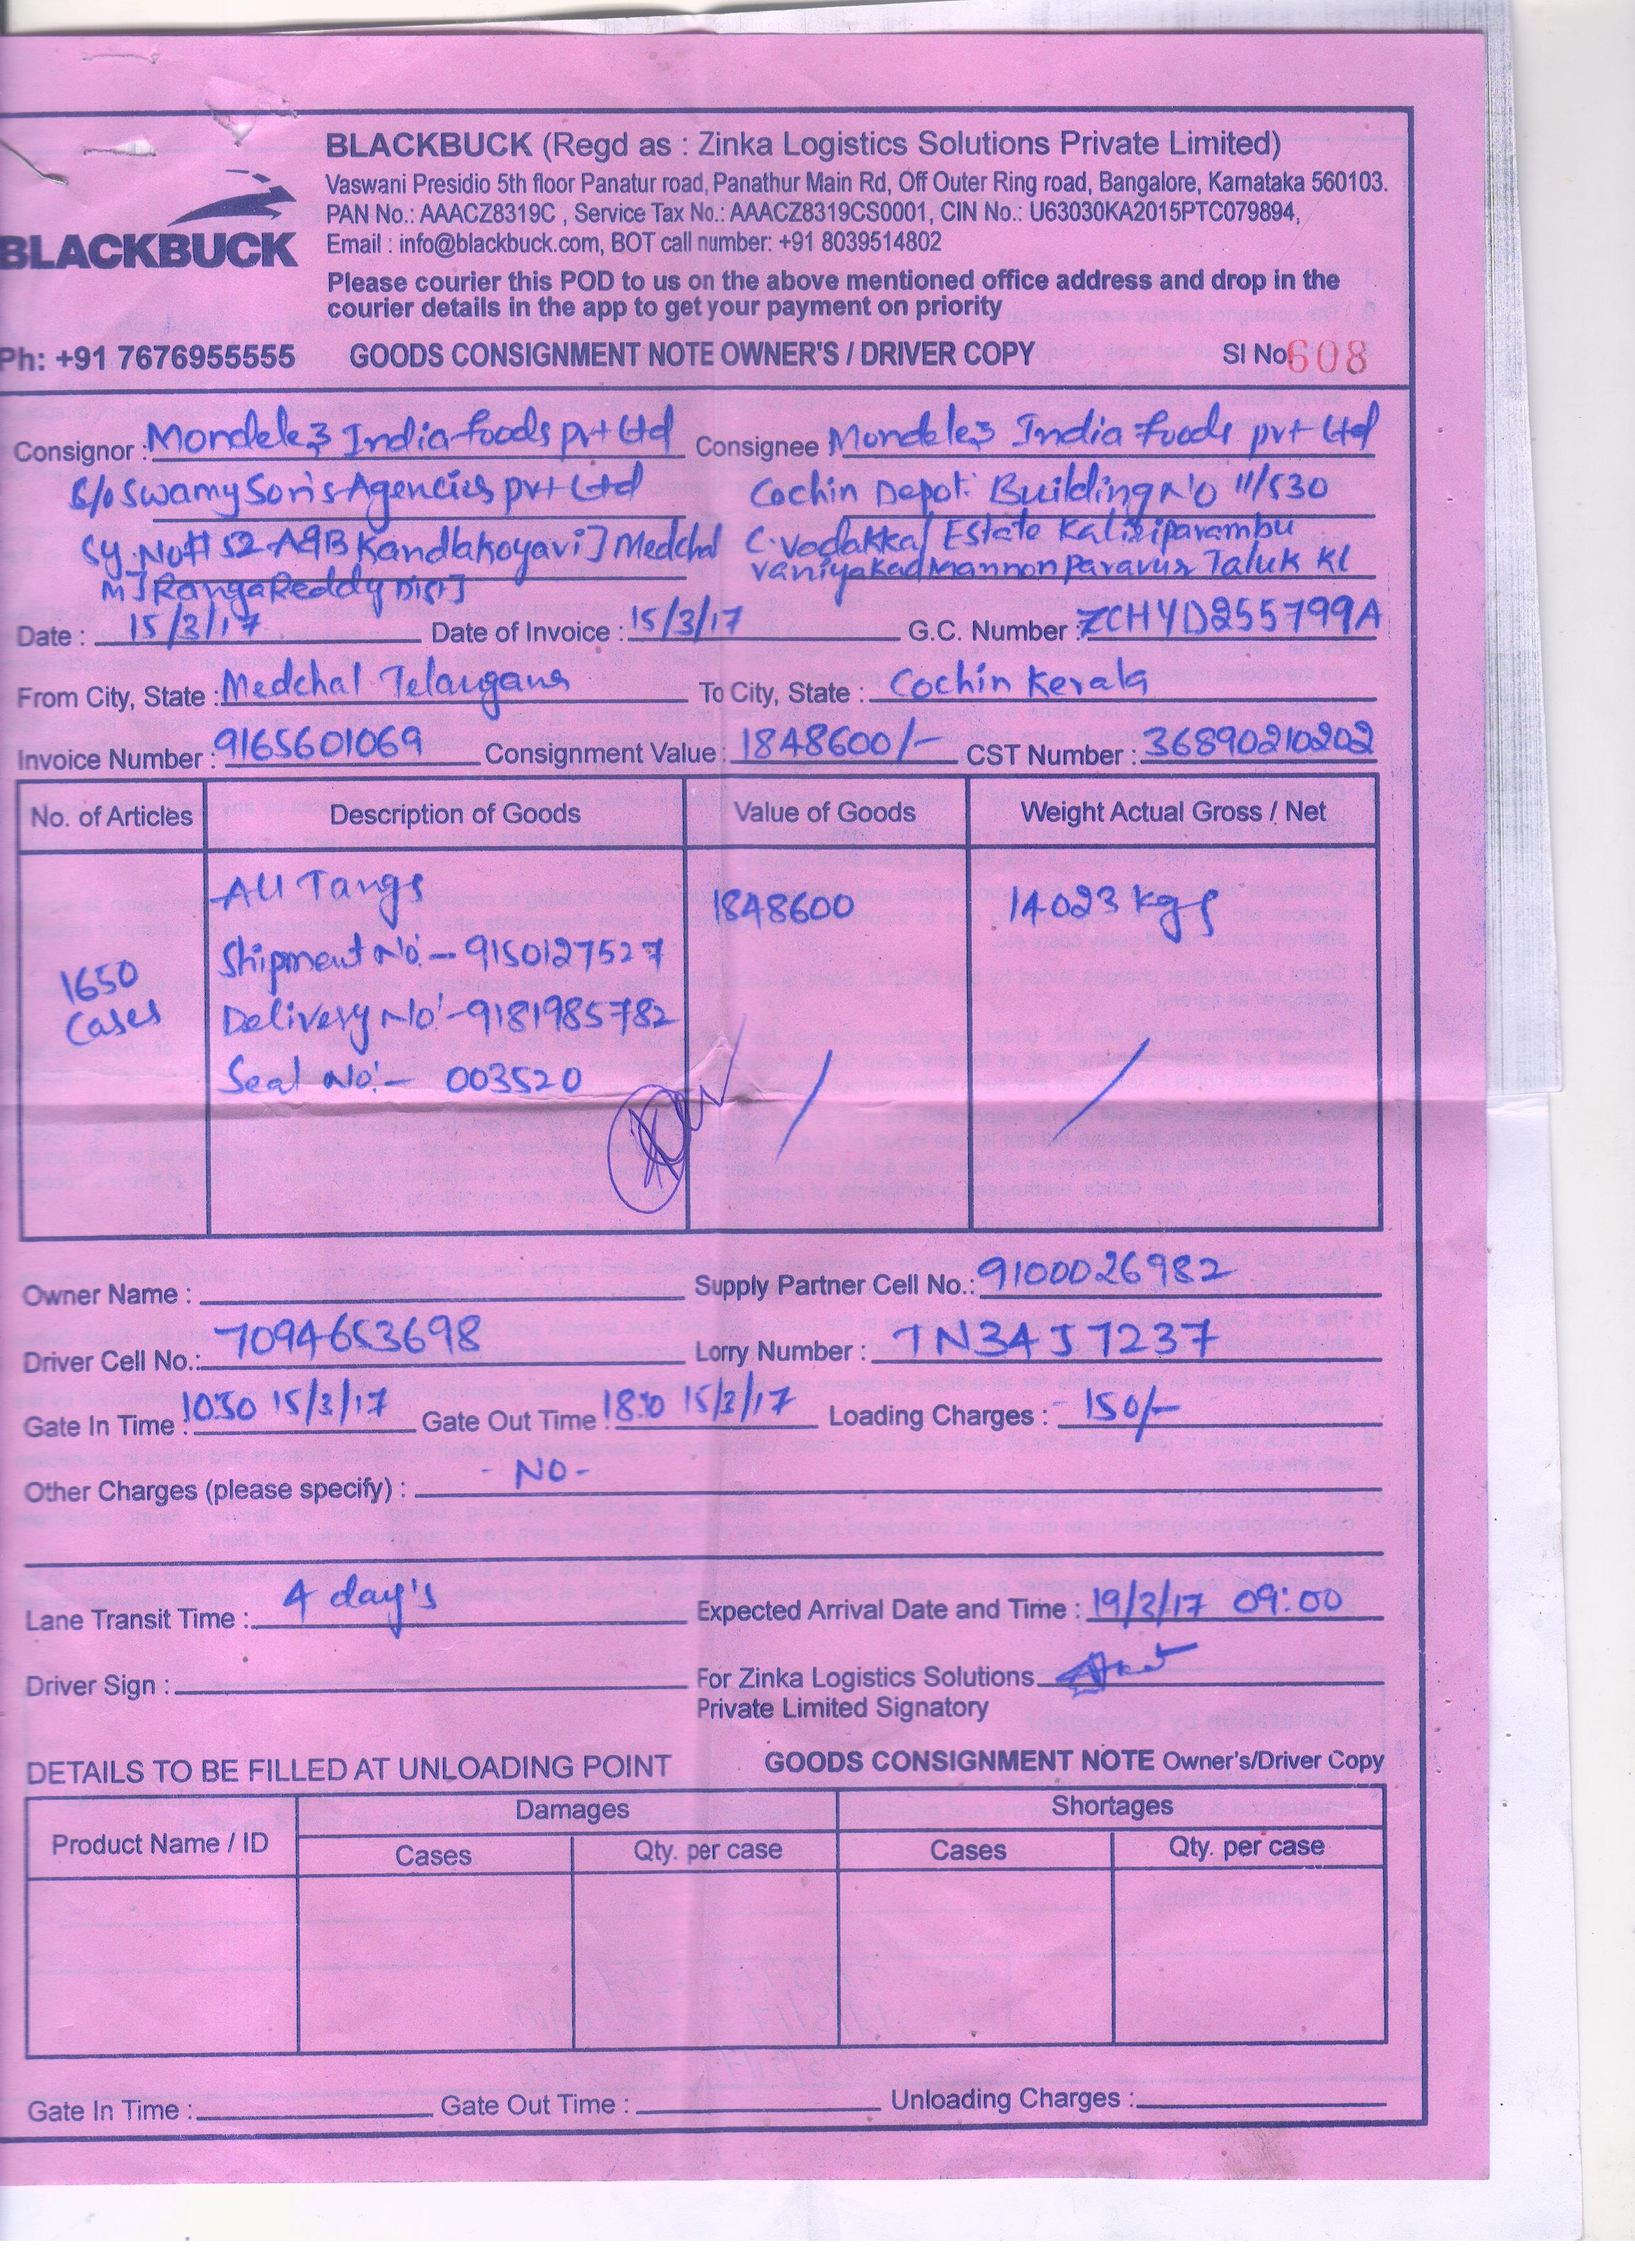 BLACKBUCK (Regd as : Zinka Logistics Solutions Private Limited)
Vaswani Presidio 5th floor Panatur road, Panathur Main Rd, Off Outer Ring road, Bangalore, Karnataka 560103.
PAN No.: AAACZ8319C , Service Tax No.: AAACZ8319CS0001, CIN No.: U63030KA2015PTC079894,
BLACKBUCK
Email : info@blackbuck.com, BOT call number: +91 8039514802
Please courier this POD to us on the above mentioned office address and drop in the
courier details in the app to get your payment on priority
Ph: +91 7676955555 GOODS CONSIGNMENT NOTE OWNER'S / DRIVER COPY Sl No. 608
Consignor : Mondelez India foods pvt Ltd Consignee Mondelez India foods pvt Ltd
Swamy Son's Agencies pvt Ltd Cochin Depot: Building No 11/530
Sy. No# 52-A9B Kandlakoyavi] Medchal C. Vadakkal Estate
M] RangaReddy Dist] Mannon Paravur Taluk KL
Date : 15/3/17 Date of Invoice : 15/3/17 G.C. Number : ZCHYD255799A
From City, State : Medchal Telangana To City, State : Cochin Kerala
Invoice Number : 9165601069 Consignment Value : 1848600/- CST Number : 36890210202
No. of Articles Description of Goods Value of Goods Weight Actual Gross / Net
All Tangs 1848600 14023 kgs
Shipment No:- 9150127527
1650 Cases
Delivery No:- 9181985782
Seal No:- 003520
Owner Name : Supply Partner Cell No.: 9100026982
Driver Cell No.: 7094653698 Lorry Number : TN34J7237
Gate In Time : 1030 15/3/17 Gate Out Time : 15/3/17 Loading Charges : 150/-
Other Charges (please specify) : - NO -
Lane Transit Time : 4 day's Expected Arrival Date and Time : 19/3/17 09:00
Driver Sign : For Zinka Logistics Solutions
Private Limited Signatory
DETAILS TO BE FILLED AT UNLOADING POINT GOODS CONSIGNMENT NOTE Owner's/Driver Copy
Product Name / ID Damages Shortages
Cases Qty. per case Cases Qty. per case
Gate In Time : Gate Out Time : Unloading Charges :